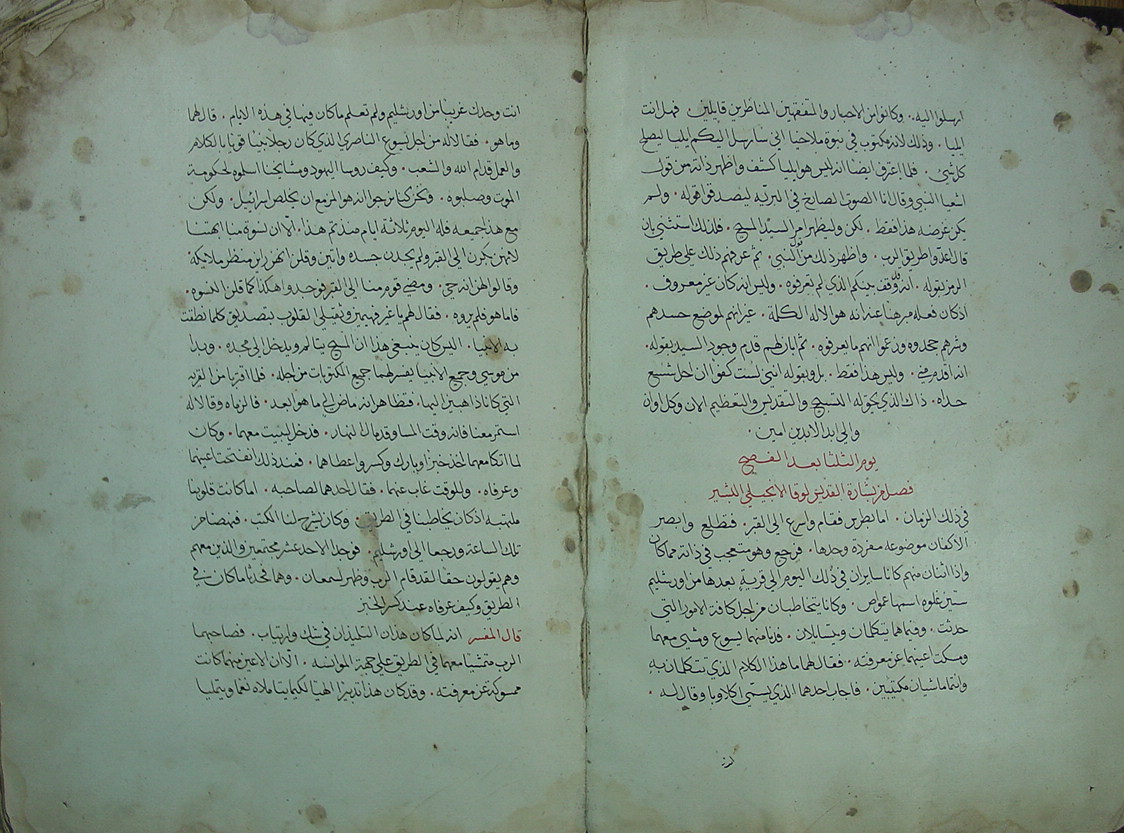 ارسلوا اليه. وكانوا من الاحبار والمتفقهين المناظرين قايلين. فهل انت
ايليا. وذلك لانه مكتوب في نبوة ملاخيا اني سارسل اليكم ايليا ليصلح
كل شي. فلما اعترف ايضا انه ليس هو ايليا كشف واظهر ذاته من قول
اشعيا النبي وقال انا الصوت الصالح في البريه ليصدقوا قوله. ولم
يكن غرضه هذا فقط. لكن وليظهر امر السيد المسيح. فلذلك استثنى بان
قال اعدوا طريق الرب. واظهر ذلك من قول النبي. ثم عرفهم ذلك على طريق
الرمز بقوله. انه واقف بينكم الذي لم تعرفوه. وليس انه كان غير معروف.
اذ كان فعله مبرهنا عنه انه هو الاله الكلمة. غير انهم لموضع حسدهم
وشرهم جحدوه ودعوا انهم ما يعرفوه. ثم ابان لهم قدم وجود السيد بقوله.
انه اقدم مني. وليس هذا فقط. بل وبقوله انني لست كفوا ان احل شسع
حداه. ذاك الذي يحق له التسبيح والتقديس والتعظيم الان وكل اوان
والى ابد الابدين امين.
يوم الثلثا بعد الفصح
فصل من بشارة القديس لوقا الانجيلي البشير
في ذلك الزمان. اما بطرس فقام واسرع الى القبر. فتطلع وابصر
الاكفان موضوعه مفردة وحدها. فرجع وهو متعجب في ذاته مما كان
واذا اثنان منهم كانا سايران في ذلك اليوم الى قرية بعدها من اورشليم
ستين غلوه اسمها عمواص. وكانا يتخاطبان من اجل كافة الامور التي
حدثت. وفيما هما يتكلمان ويتسايلان. فدنا منهما يسوع ومشي معهما
ومسكت اعينهما عن معرفته. فقال لهما ما هذا الكلام الذي تتكلمان به
وانتما ماشيان مكتيبين. فاجاب احدهما الذي يسمى اكلاوبا وقال له.
انت وحدك غريبا من اورشليم ولم تعلم ما كان فيها في هذه الايام. قال لهما
وما هو. فقالا له من اجل يسوع الناصري الذي كان رجلا نبيا قويا بالكلام
والعمل قدام الله والشعب. وكيف روسا اليهود ومشايخنا اسلموه لحكومة
الموت وصلبوه. ونحن كنا نرجوا انه هو المزمع ان يخلص اسرائيل. ولكن
مع هذا جميعه فله اليوم ثلاثة ايام منذ تم هذا. الا ان نسوة منا ابهتننا
لانهن بكرن الى القبر ولم يجدن جسده واتين وقلن انهن راين منظر ملايكة
وقالوا لهن انه حي. ومضى قوم منا الى القبر فوجدوا هكذا كما قلن النسوه.
فاما هو فلم يروه. فقال لهم يا غير فهيمين وثقيلي القلوب بتصديق كلما نطقت
به الانبيا. اليس كان ينبغي هذا ان المسيح يتالم ويدخل الى مجده. وبدا
من موسي وجميع الانبيا يفسر لهما جميع المكتوبات من اجله. فلما اقتربا من القريه
التي كانا ذاهبين اليها. فتظاهر انه ماض الى ما هو ابعد. فالزماه وقالا له
استمر معنا فانه وقت المسا وقد مال النهار. فدخل ليبيت معهما. وكان
لما اتكا معهما اخذ خبزا وبارك وكسر واعطاهما. فعند ذلك انفتحت اعينهما
وعرفاه. وللوقت غاب عنهما. فقال احدهما لصاحبه. اما كانت قلوبنا
ملتهبه اذ كان يخاطبنا في الطريق. وكان يشرح لنا الكتب. فنهضا من
تلك الساعة ورجعا الى اورشليم. فوجدا الاحد عشر مجتمعين والذين معهم
وهم يقولون حقا لقد قام الرب وظهر لسمعان. وهما تحدثا ما كان في
الطريق وكيف عرفاه عند كسر الخبز
قال المفسر انه لما كان هذان التلميذان في شك وارتياب. فصاحبهما
الرب متمشيا معهما في الطريق على جهة الموانسه. الا ان الاعين منهما كانت
ممسوكة عن معرفته. وقد كان هذا تدبيرا الهيا لكيما يتاملاه نعما ويتمليا